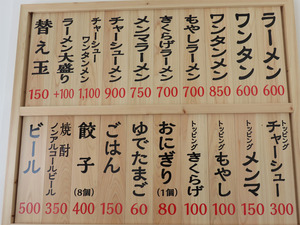 ラーメン 600
ワンタン 600
ワンタンメン 850
もやしラーメン 700
きくらげラーメン 700
メンマラーメン 750
チャーシューメン 900
チャーシューワンタンメン 1,100
ラーメン大盛り +100
替え玉 150
トッピング チャーシュー 300
トッピング メンマ 150
トッピング もやし 100
トッピング きくらげ 100
おにぎり(1個) 80
ゆでたまご 60
ごはん 150
餃子(8個) 400
焼酎 ノンアルコールビール 350
ビール 500